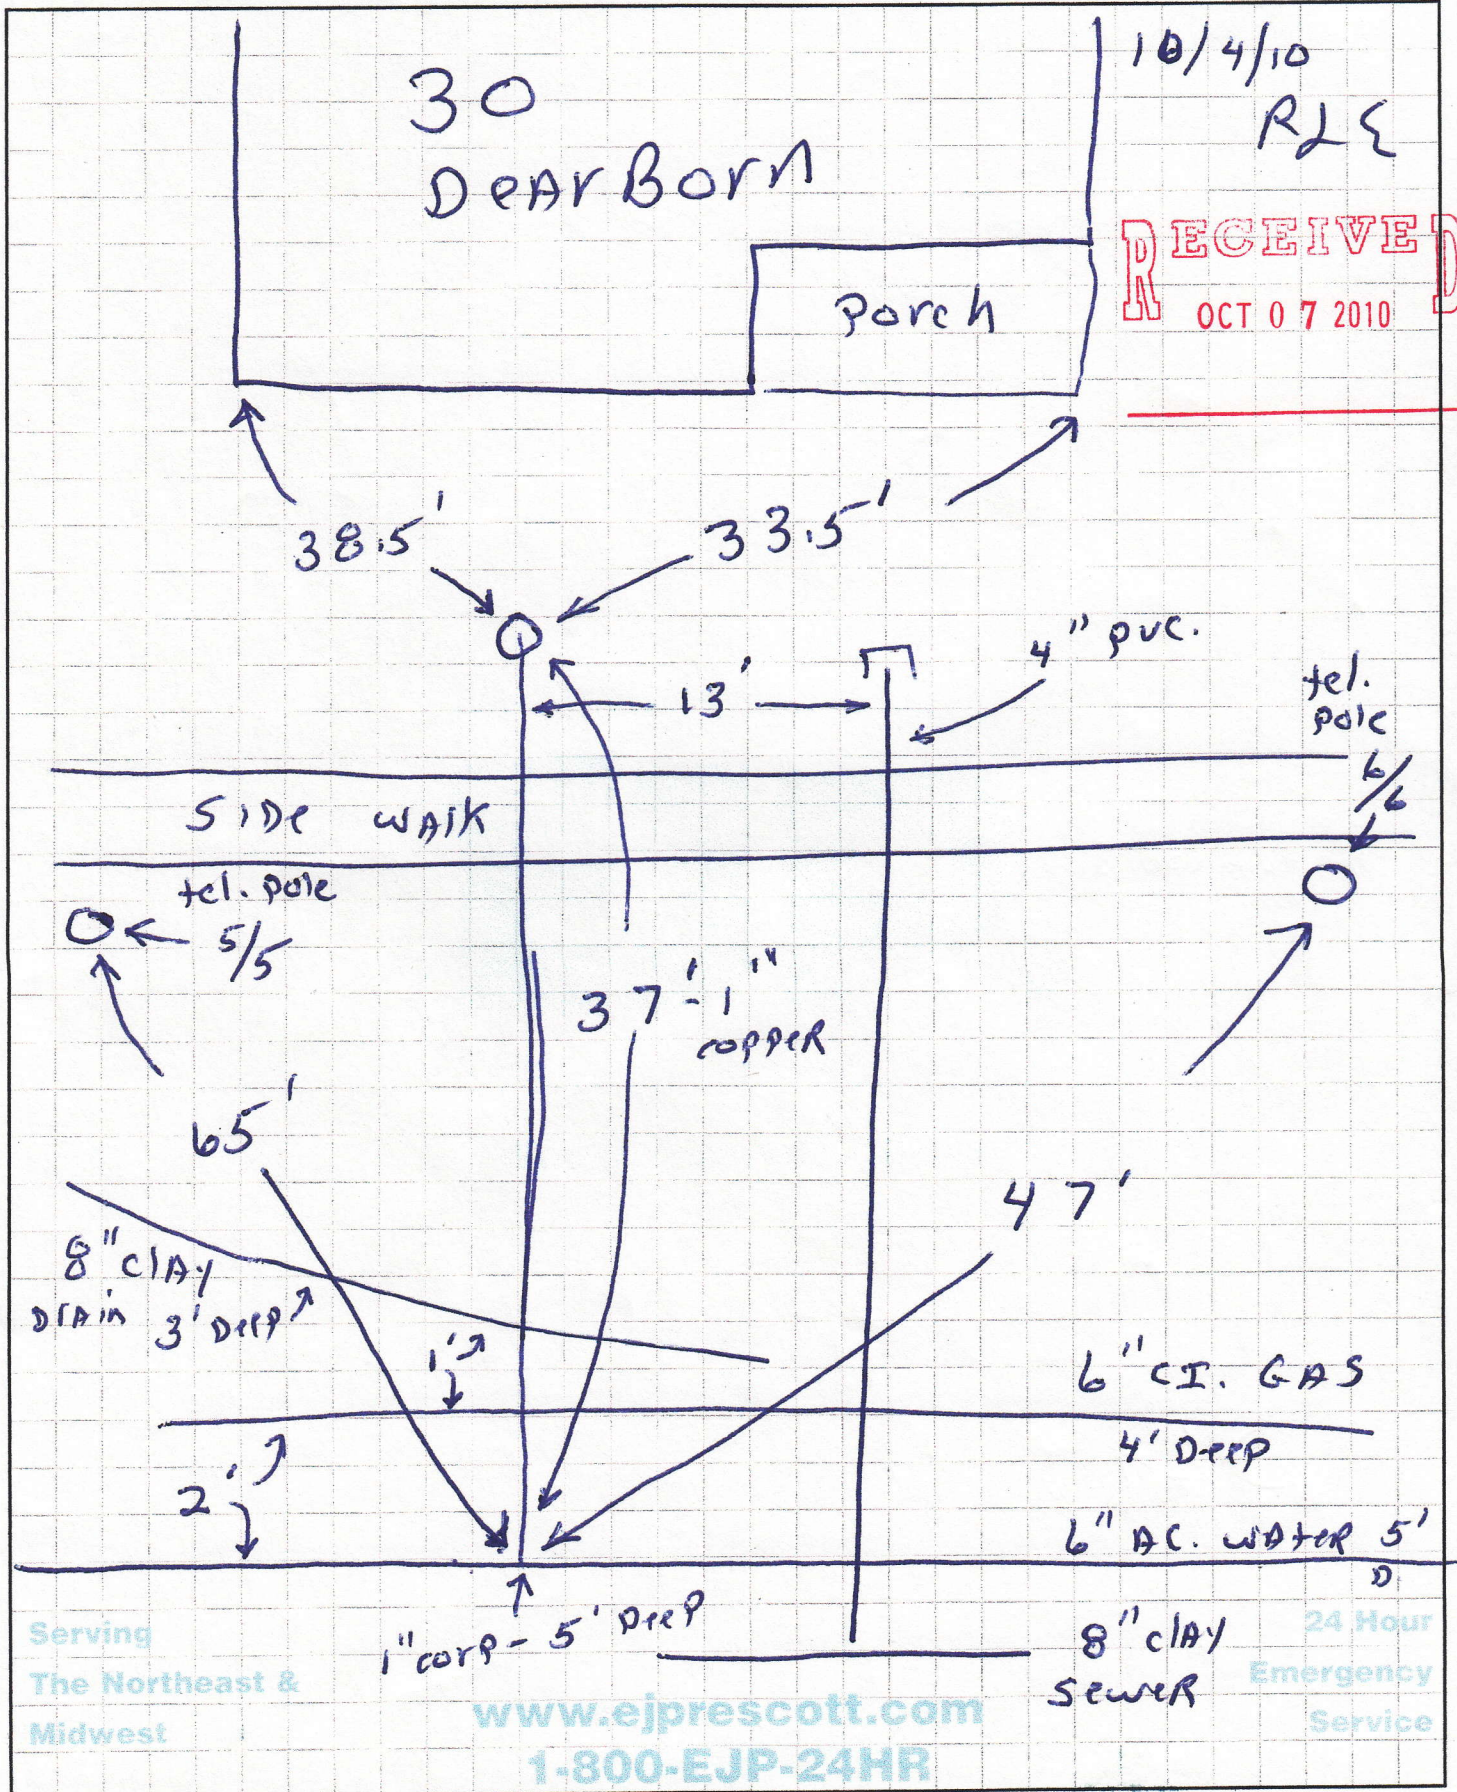 30
DeArBorn
10/4/10
RLE
RECEIVED
OCT 07 2010
Porch
38.5'
33.5'
13'
4" pvc.
tel.
pole
6/6
SiDe wAlk
tel. pole
5/5
37'-1"
copper
65'
47'
8" clAy
DrAin 3' Deep
1'
6" CI. GAS
4' Deep
2'
6" AC. wAter 5'
D
1" corp - 5' Deep
8" clAy
sewer
Serving
The Northeast &
Midwest
www.ejprescott.com
1-800-EJP-24HR
24 Hour
Emergency
Service